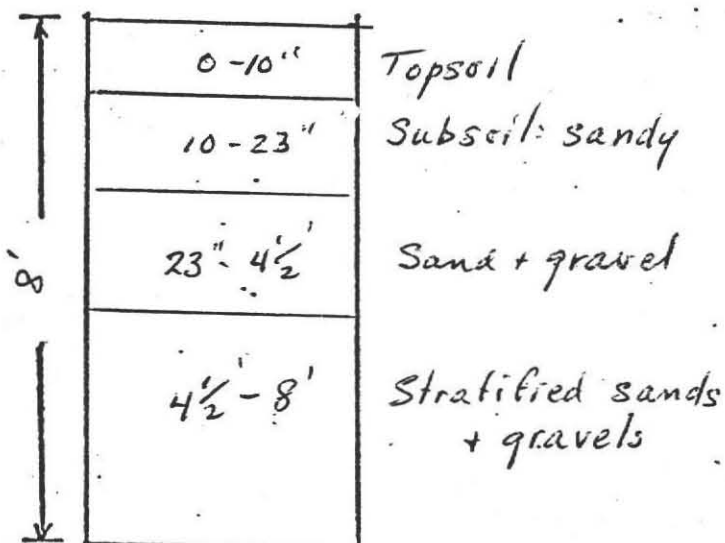 0-10" Topsoil
10-23" Subsoil: sandy
23"-4½' Sand + gravel
8'
4½'-8' Stratified sands
+ gravels